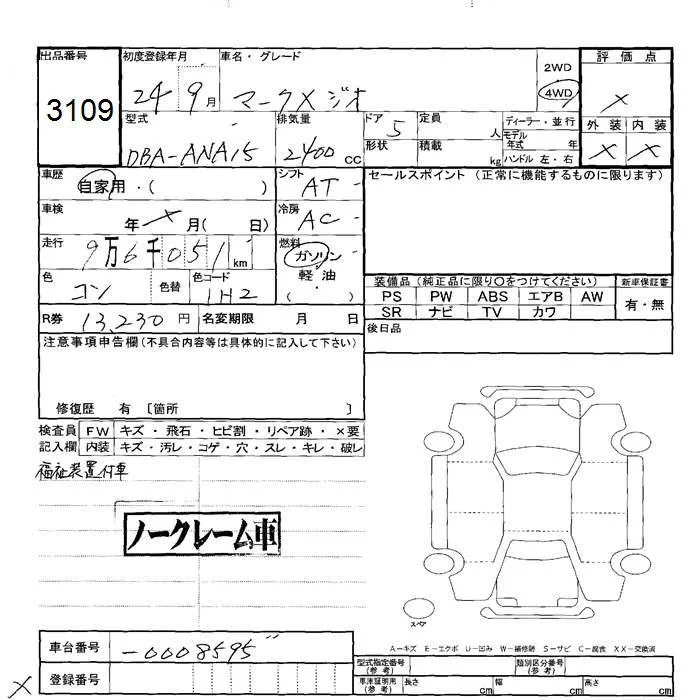 出品番号 初度登録年月 車名・グレード 評価点
3109 24 9月 マークXジオ 2WD 4WD ×
型式 排気量 ドア 定員 ディーラー・並行 外装 内装
DBA-ANA15 2400cc 5 人 モデル年式 年 × ×
形状 積載 kg ハンドル 左・右
車歴 自家用・( ) シフト AT セールスポイント (正常に機能するものに限ります)
車検 年 × 月( 日) 冷房 AC
走行 9万6千051km 燃料 ガソリン
軽油
( )
色 コン 色替 色コード 1H2
装備品 (純正品に限り○をつけてください) 新車保証書
PS PW ABS エアB AW 有・無
SR ナビ TV カワ
R券 13,230円 名変期限 月 日 後日品
注意事項申告欄(不具合内容等は具体的に記入して下さい)
修復歴 有 [箇所 ]
検査員 FW キズ・飛石・ヒビ割・リペア跡・×要
記入欄 内装 キズ・汚レ・コゲ・穴・スレ・キレ・破レ
福祉装置付車
ノークレーム車
スペア
A-キズ E-エクボ U-凹み W-補修跡 S-サビ C-腐食 XX-交換済
車台番号 -0008595
登録番号
×
型式指定番号(参考) 類別区分番号(参考)
車庫証明用(参考) 長さ cm 幅 cm 高さ cm